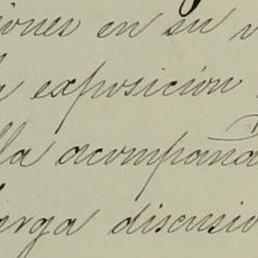 iones en su v
a exposición
lla acompaña
larga discusio